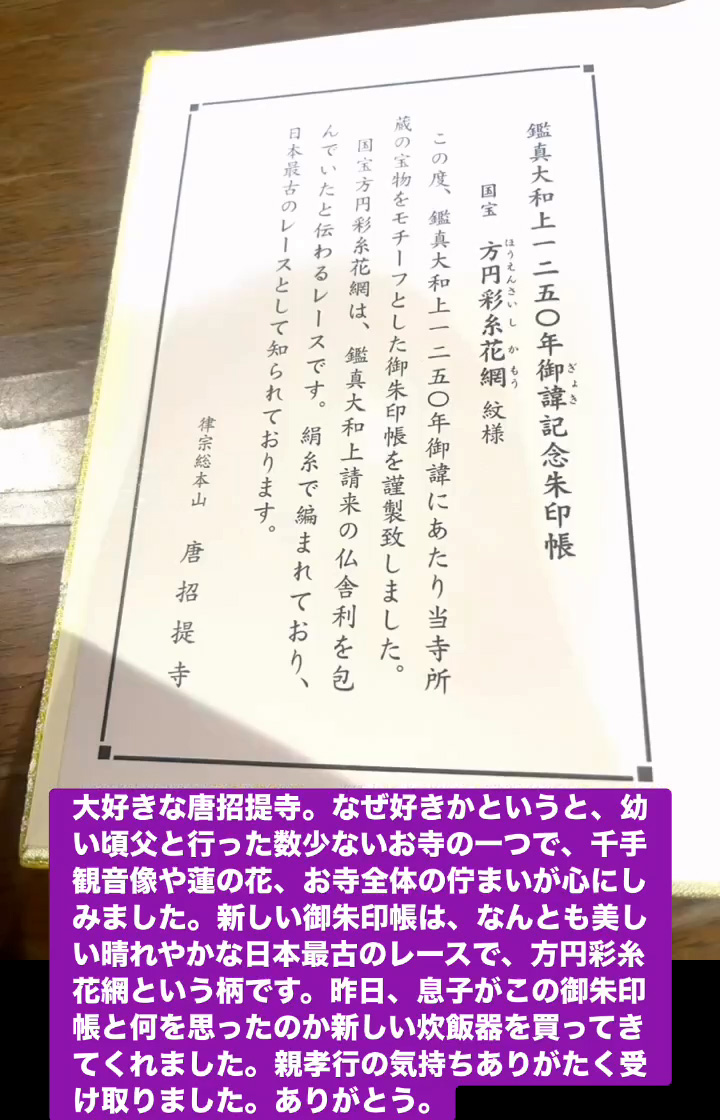 鑑真大和上一二五〇年御諱記念朱印帳
ぎょき
国宝 方円彩糸花網 紋様
ほうえんさいしかもう
この度、鑑真大和上一二五〇年御諱にあたり当寺所
蔵の宝物をモチーフとした御朱印帳を謹製致しました。
国宝方円彩糸花網は、鑑真大和上請来の仏舎利を包
んでいたと伝わるレースです。絹糸で編まれており、
日本最古のレースとして知られております。
律宗総本山 唐招提寺
大好きな唐招提寺。なぜ好きかというと、幼
い頃父と行った数少ないお寺の一つで、千手
観音像や蓮の花、お寺全体の佇まいが心にし
みました。新しい御朱印帳は、なんとも美し
い晴れやかな日本最古のレースで、方円彩糸
花網という柄です。昨日、息子がこの御朱印
帳と何を思ったのか新しい炊飯器を買ってき
てくれました。親孝行の気持ちありがたく受
け取りました。ありがとう。